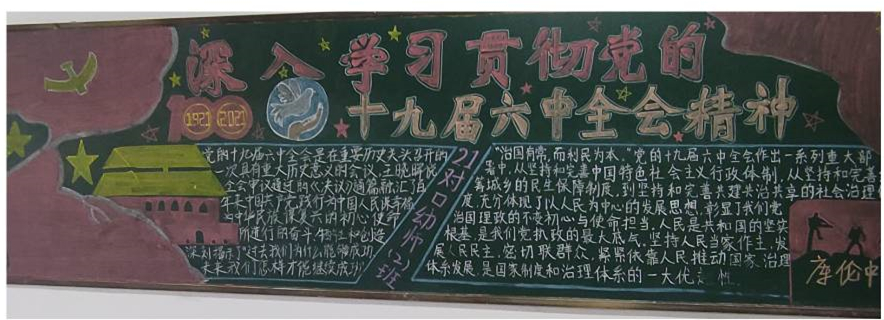 深入学习贯彻党的
十九届六中全会精神
100
1921 2021
党的十九届六中全会是在重要历史关头召开的
一次具有重大历史意义的会议,
全会审议通过的《决议》通篇融汇了百
年来中国共产党践行为中国人民谋幸福
为中华民族谋复兴的初心使命
所进行的奋斗
深刻揭示了"过去我们为什么能够成功,
未来我们怎样才能继续成功"
21对口幼师(2)班
"治国有常,而利民为本。"党的十九届六中全会作出一系列重大部
署中,从坚持和完善中国特色社会主义行政体制,从坚持和完善
城乡的民生保障制度,到坚持和完善共建共治共享的社会治理
度,充分体现了以人民为中心的发展思想,彰显了我们党
治国理政的不变初心与使命担当,人民是共和国的坚实
根基,是我们党执政的最大底气,坚持人民当家作主,发
展人民民主,密切联群众,紧紧依靠人民推动国家治理
体系发展,是国家制度和治理体系的一大优
库伦中